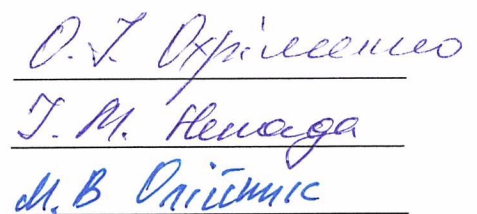 О.І. Охріменко
І. М. Ненада
М.В Олійник